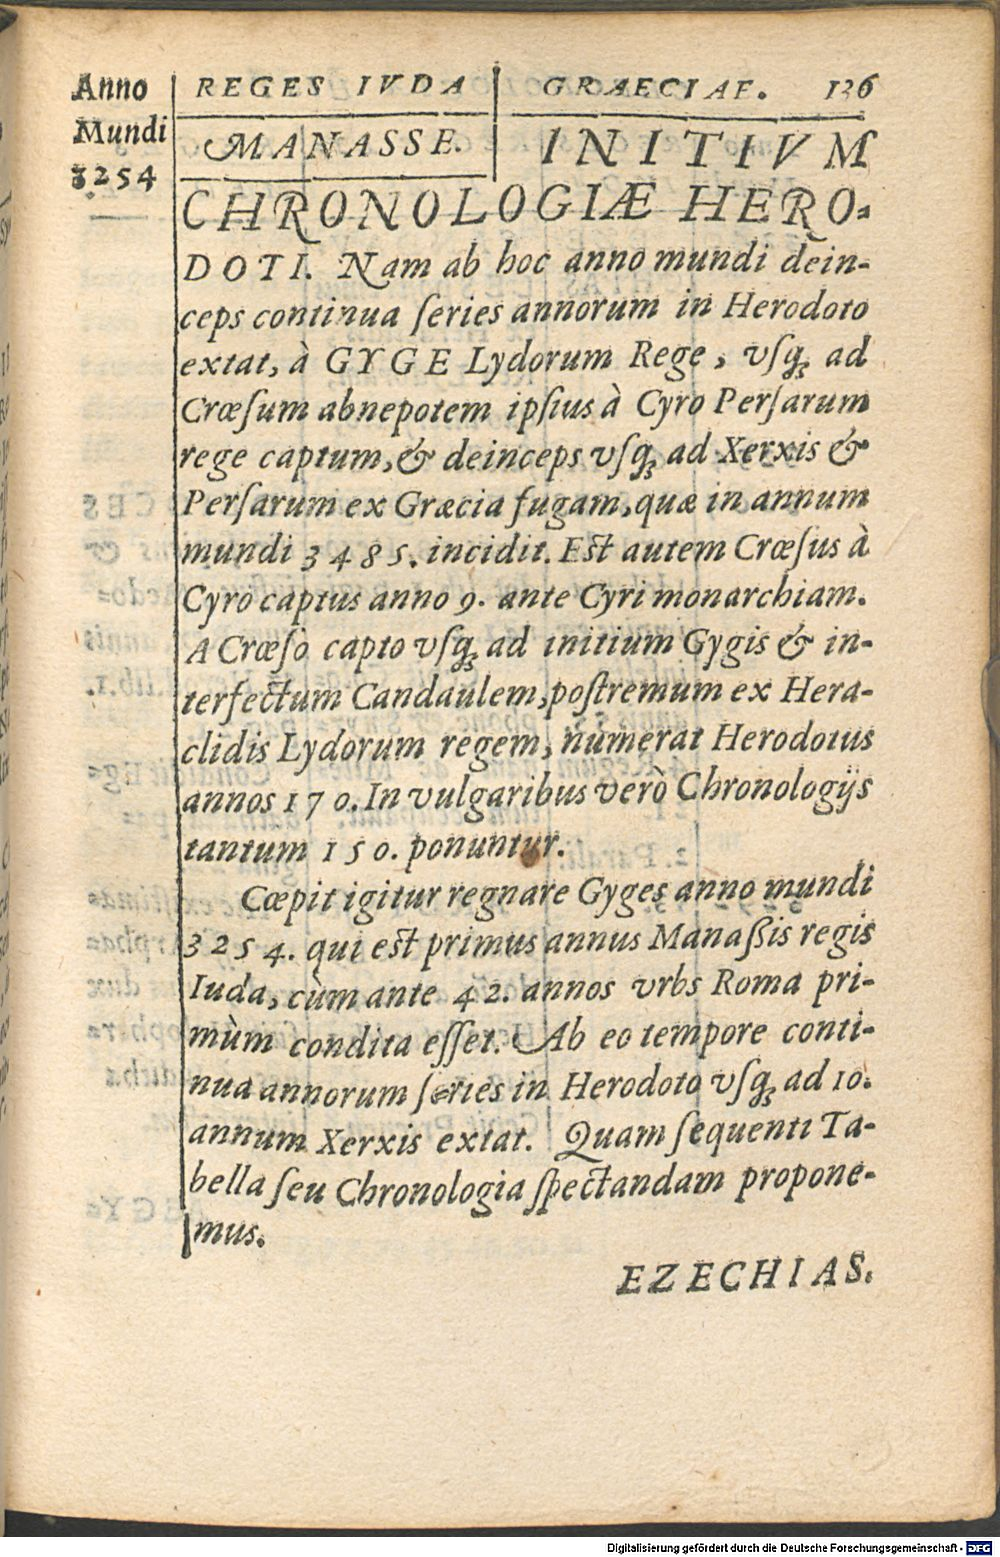 Anno
Mundi
3254
REGES IVDA
GRAECIAE. 126
MANASSE.
INITIVM
CHRONOLOGIÆ HERO-
DOTI. Nam ab hoc anno mundi dein-
ceps continua ſeries annorum in Herodoto
extat, à GYGE Lydorum Rege, vſq; ad
Crœſum abnepotem ipſius à Cyro Perſarum
rege captum, & deinceps vſq; ad Xerxis &
Perſarum ex Græcia fugam, quæ in annum
mundi 3485. incidit. Eſt autem Crœſus à
Cyro captus anno 9. ante Cyri monarchiam.
A Crœſo capto vſq; ad initium Gygis & in-
terfectum Candaulem, poſtremum ex Hera-
clidis Lydorum regem, numerat Herodotus
annos 170. In vulgaribus verò Chronologijs
tantum 150. ponuntur.
Cœpit igitur regnare Gyges anno mundi
3254. qui eſt primus annus Manaßis regis
Iuda, cùm ante 42. annos vrbs Roma pri-
mùm condita eſſet. Ab eo tempore conti-
nua annorum ſeries in Herodoto vſq; ad 10.
annum Xerxis extat. Quam ſequenti Ta-
bella ſeu Chronologia ſpectandam propone-
mus.
EZECHIAS.
Digitalisierung gefördert durch die Deutsche Forschungsgemeinschaft - DFG